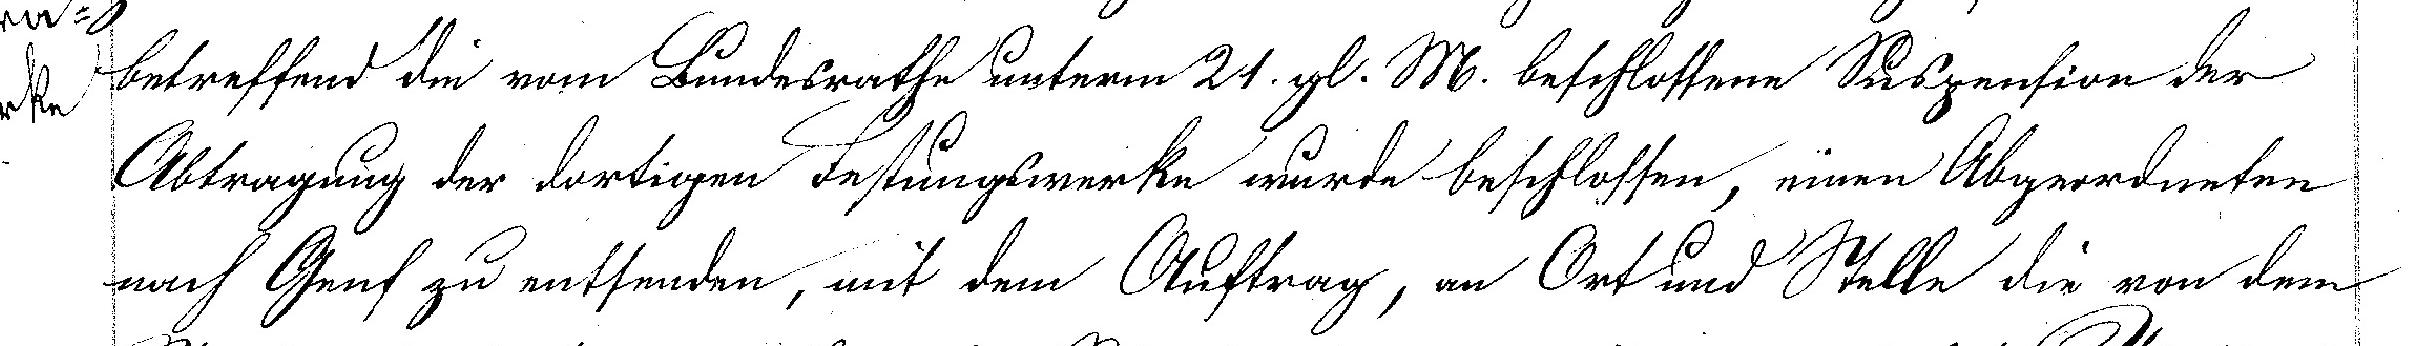 betreffend die vom Bundesrathe unterm 21. gl. M. beschlossene Suspension der
Abtragung der dortigen Festungswerke wurde beschlossen, einen Abgeordneten
nach Genf zu entsenden, mit dem Auftrag, an Ort und Stelle die von dem